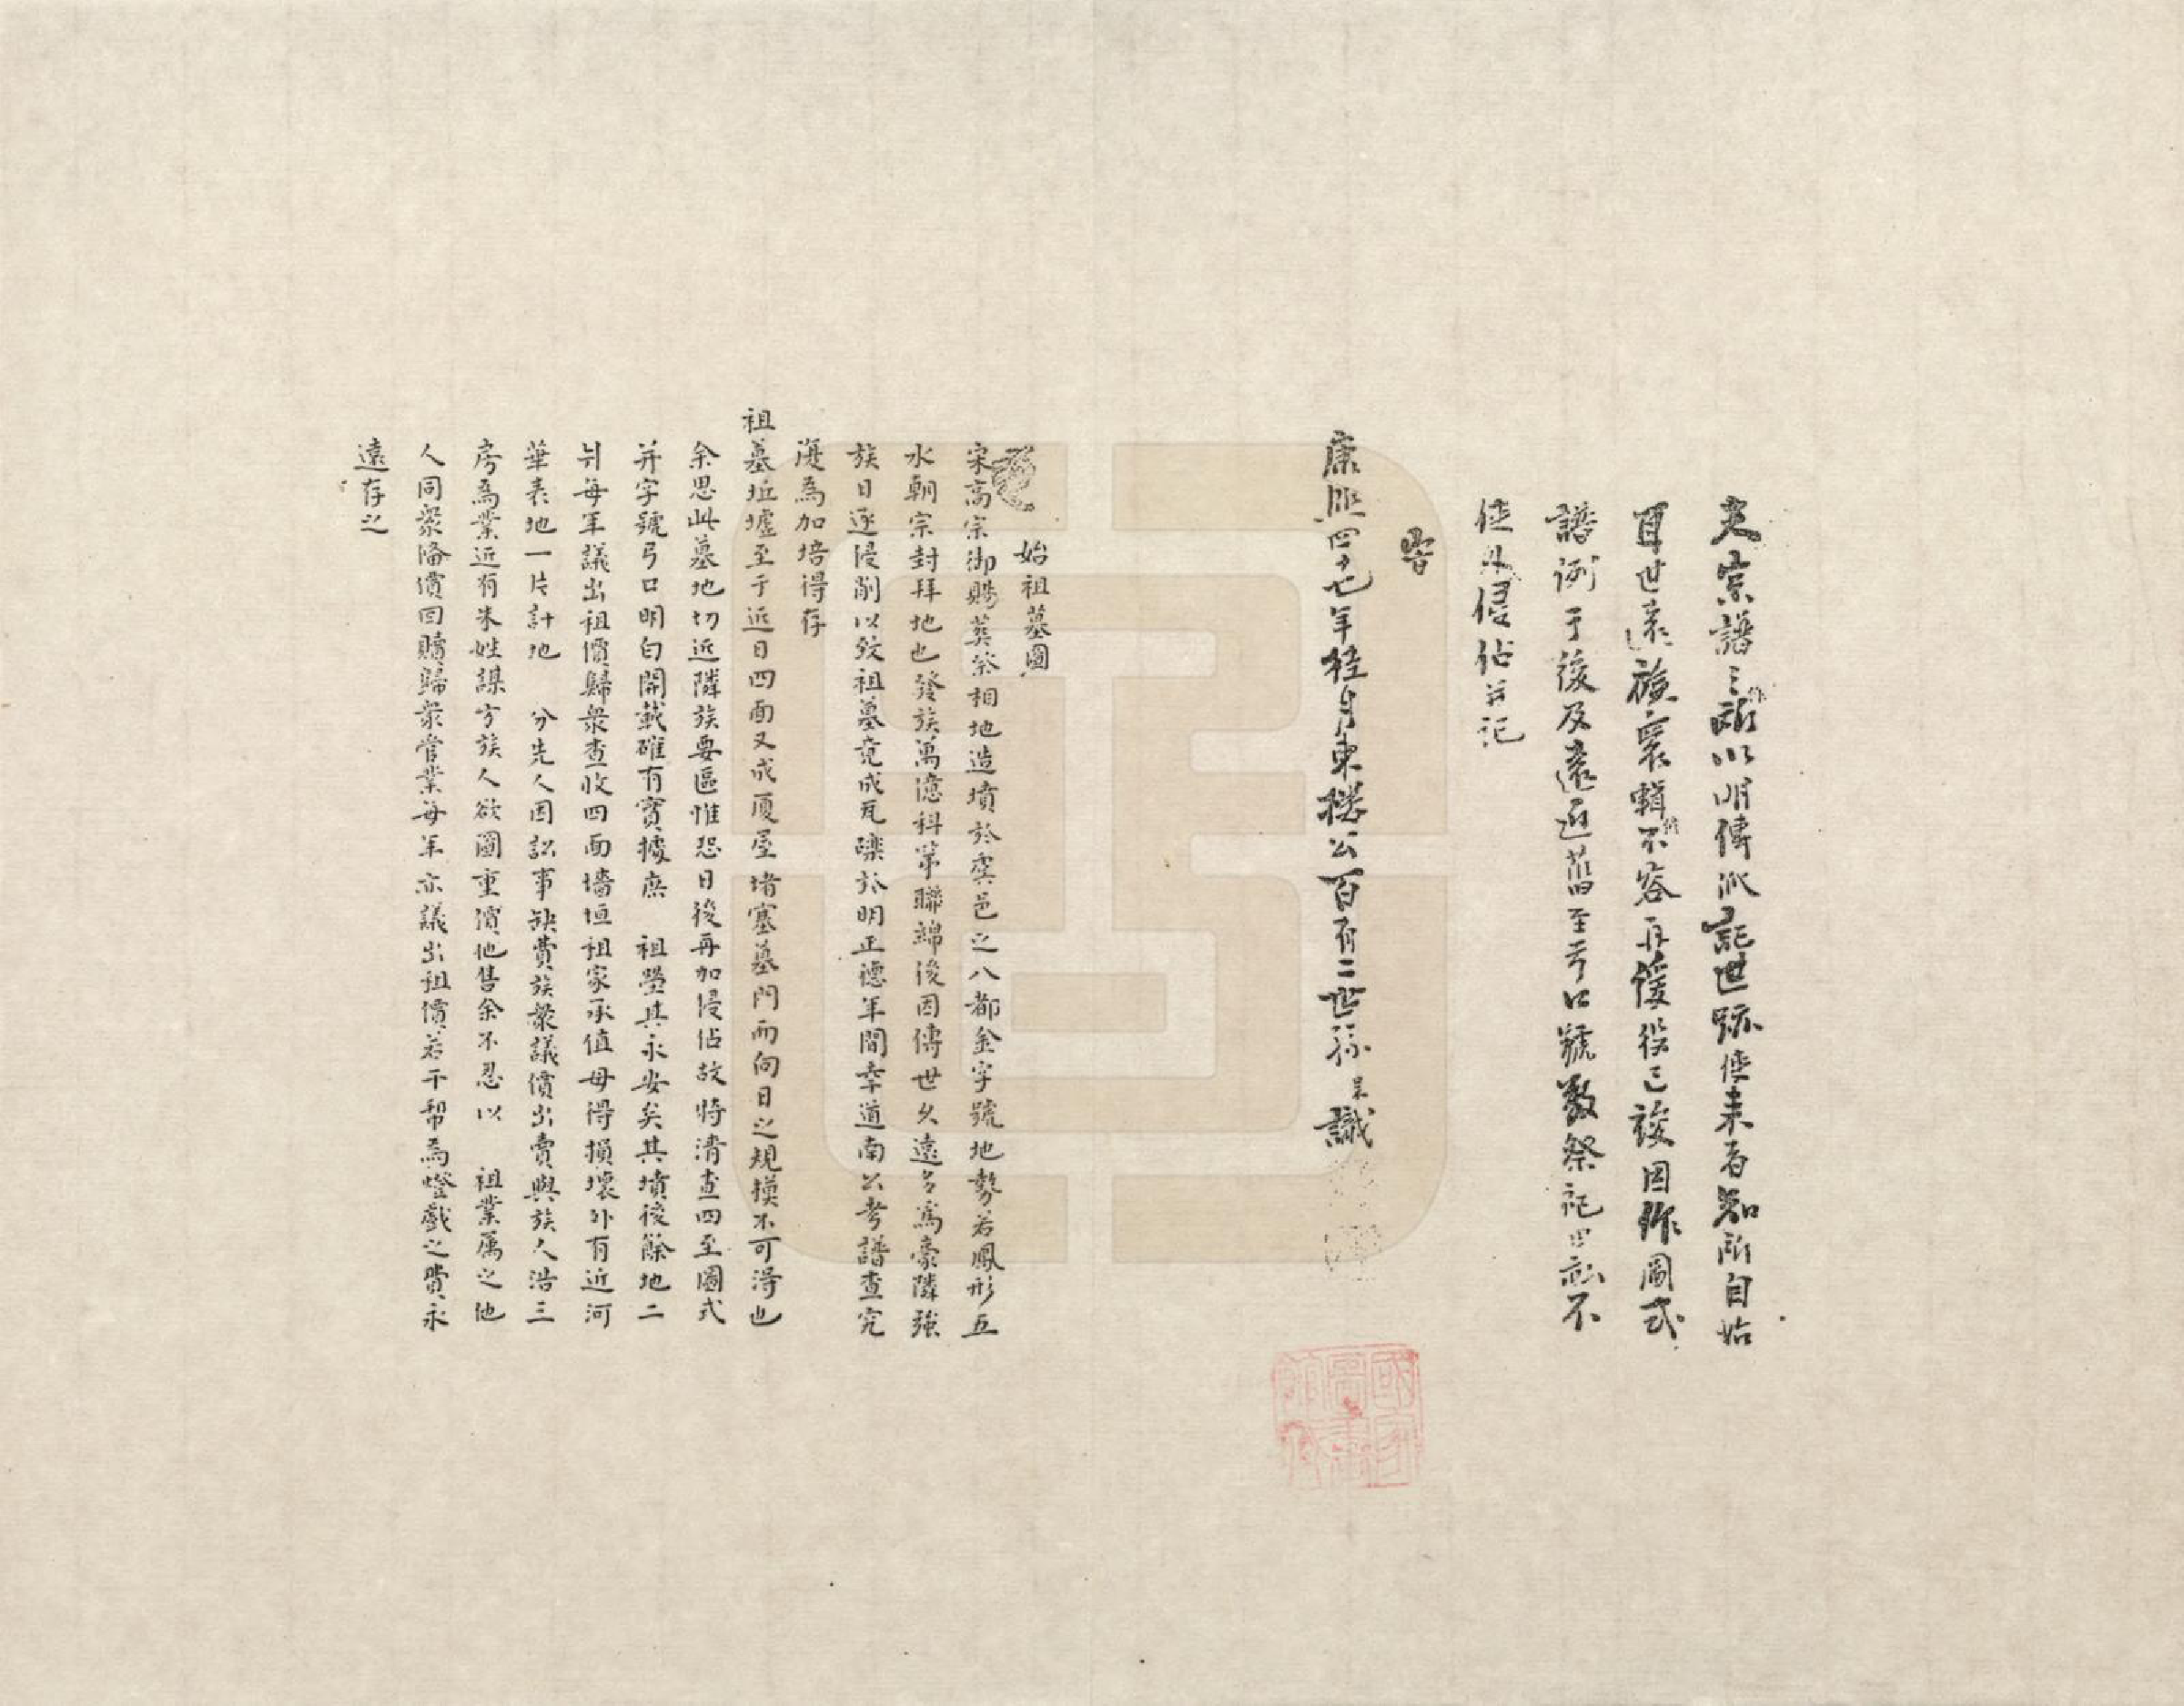 夫宗譜之所以明傳派記世跡使来者知所自始
耳世遠族衰輯不容再緩役已竣因作圖式
譜例于後及遠近舊至弓口號數祭祀田祘不
使外侵佔并記
旹
康熙四十七年桂月東樓公百有二世孫 識
始祖墓圖
宋高宗御賜葬祭相地造墳於虞邑之八都金字號地勢若鳳形五
水朝宗封拜地也發族萬億科第聯綿後因傳世久遠多為豪隣強
族日逐侵削以致祖墓竟成瓦礫於明正德年間幸道南公考譜查究
漸為加培得存
祖墓坵墟至于近日四面又成厦屋堵塞墓門而向日之規模不可得也
余思此墓地切近隣族要區惟恐日後再加侵佔故將清查四至圖式
并字號弓口明白開載確有實據庶 祖塋其永安矣其墳後餘地二
每年議出租價歸衆查收四面墻垣租家承值毋得損壞外有近河
華表地一片計地 分先人因訟事缺費族衆議價出賣與族人浩三
房為業近有朱姓謀方族人欲圖重價他售余不忍以 祖業屬之他
人同衆俻價回贖歸衆管業每年亦議出租價若干帮為燈戲之費永
遠存之